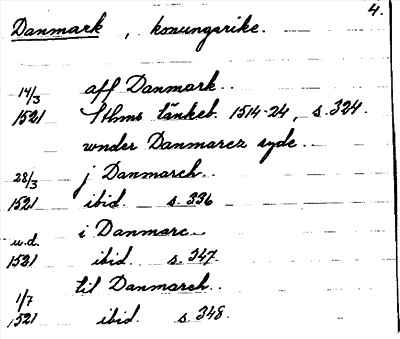 4.
Danmark, konungarike.
14/3 aff Danmark..
1521 Sthms tänkeb. 1514-24, s. 324.
wnder Danmarcz syde..
28/3 j Danmarch..
1521 ibid. s. 336
u.d. i Danmarc..
1521 ibid. s. 347.
1/7 til Danmarch..
1521 ibid. s. 348.